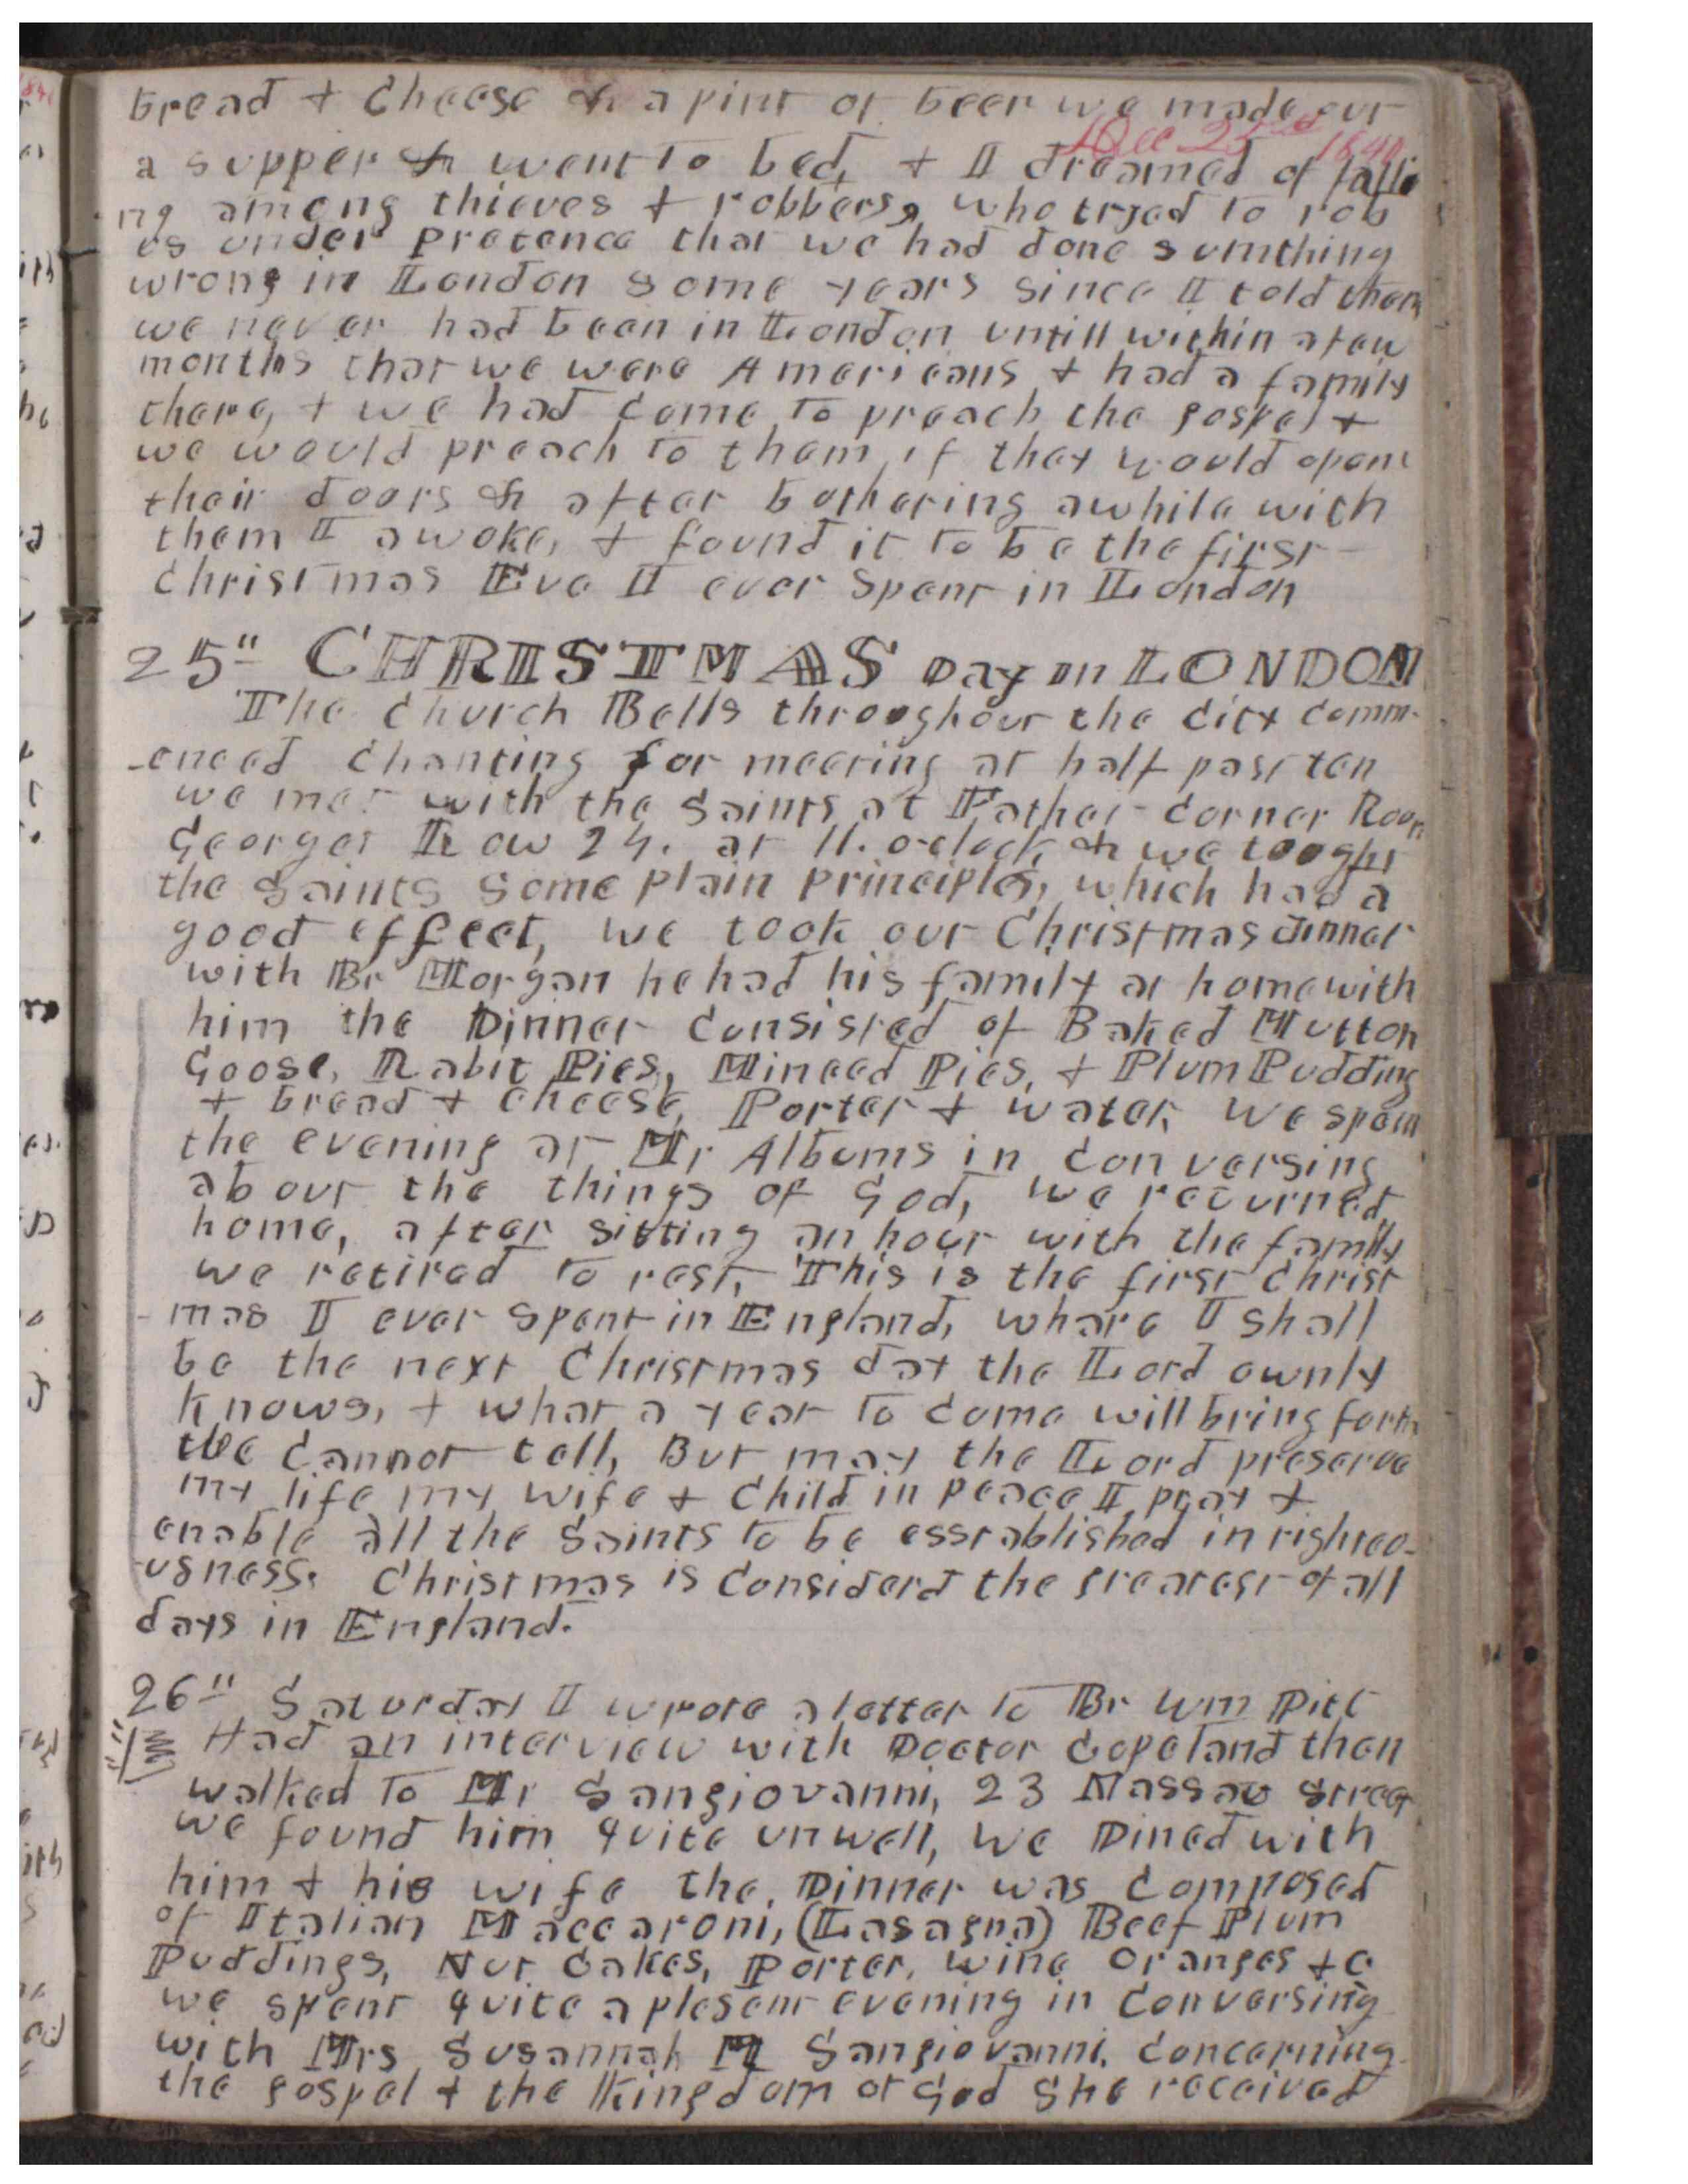 bread & Cheese & a pint of beer we made our
Dec 25th 1840
a supper & went to bed, & I dreamed of falli
ng among thieves & robbers, who tryed to rob
us under pretence that we had done sumthing
wrong in London some years since I told them
we never had been in London untill within a few
months that we were Americans & had a family
there, & we had come to preach the gospel &
we would preach to them if they would open
their doors & after bothering awhile with
them I awoke, & found it to be the first
Christmas Eve I ever Spent in London
25" CHRISTMAS Day in LONDON
The Church Bells throughout the City Comm-
-enced Chanting for meeting at half past ten
we met with the Saints at Father Corner Room
Georges Row 24. at 11. o-clock & we tought
the Saints Some plain principles, which had a
good effect, we took our Christmas dinner
with Br Morgan he had his family at home with
him the Dinner Consisted of Baked Mutton
Goose, Rabit Pies, Minced Pies, & Plum Pudding
& bread & cheese, Porter & water, we spent
the evening at Mr Albums in Conversing
about the things of God, we returned
home, after sitting an hour with the family
we retired to rest, This is the first Christ
-mas I ever Spent in England, whare I shall
be the next Christmas day the Lord ownly
knows, & what a year to Come will bring forth
we Cannot tell, But may the Lord preserve
my life my wife & Child in peace I pray &
enable all the Saints to be esstablished in righteo-
usness. Christmas is Considerd the greatest of all
days in England.
26" Saturday I wrote a letter to Br Wm Pitt
Had an interview with Doctor Copeland then
walked to Mr Sangiovanni, 23 Nassau Street
we found him quite unwell, we Dined with
him & his wife the Dinner was Composed
of Italian Maccaroni, (Lasagna) Beef Plum
Puddings, Nut Cakes, Porter, wine Oranges &c
we spent quite a plesent evening in Conversing
with Mrs Susannah M Sangiovanni. Concerning
the gospel & the Kingdom of God She received